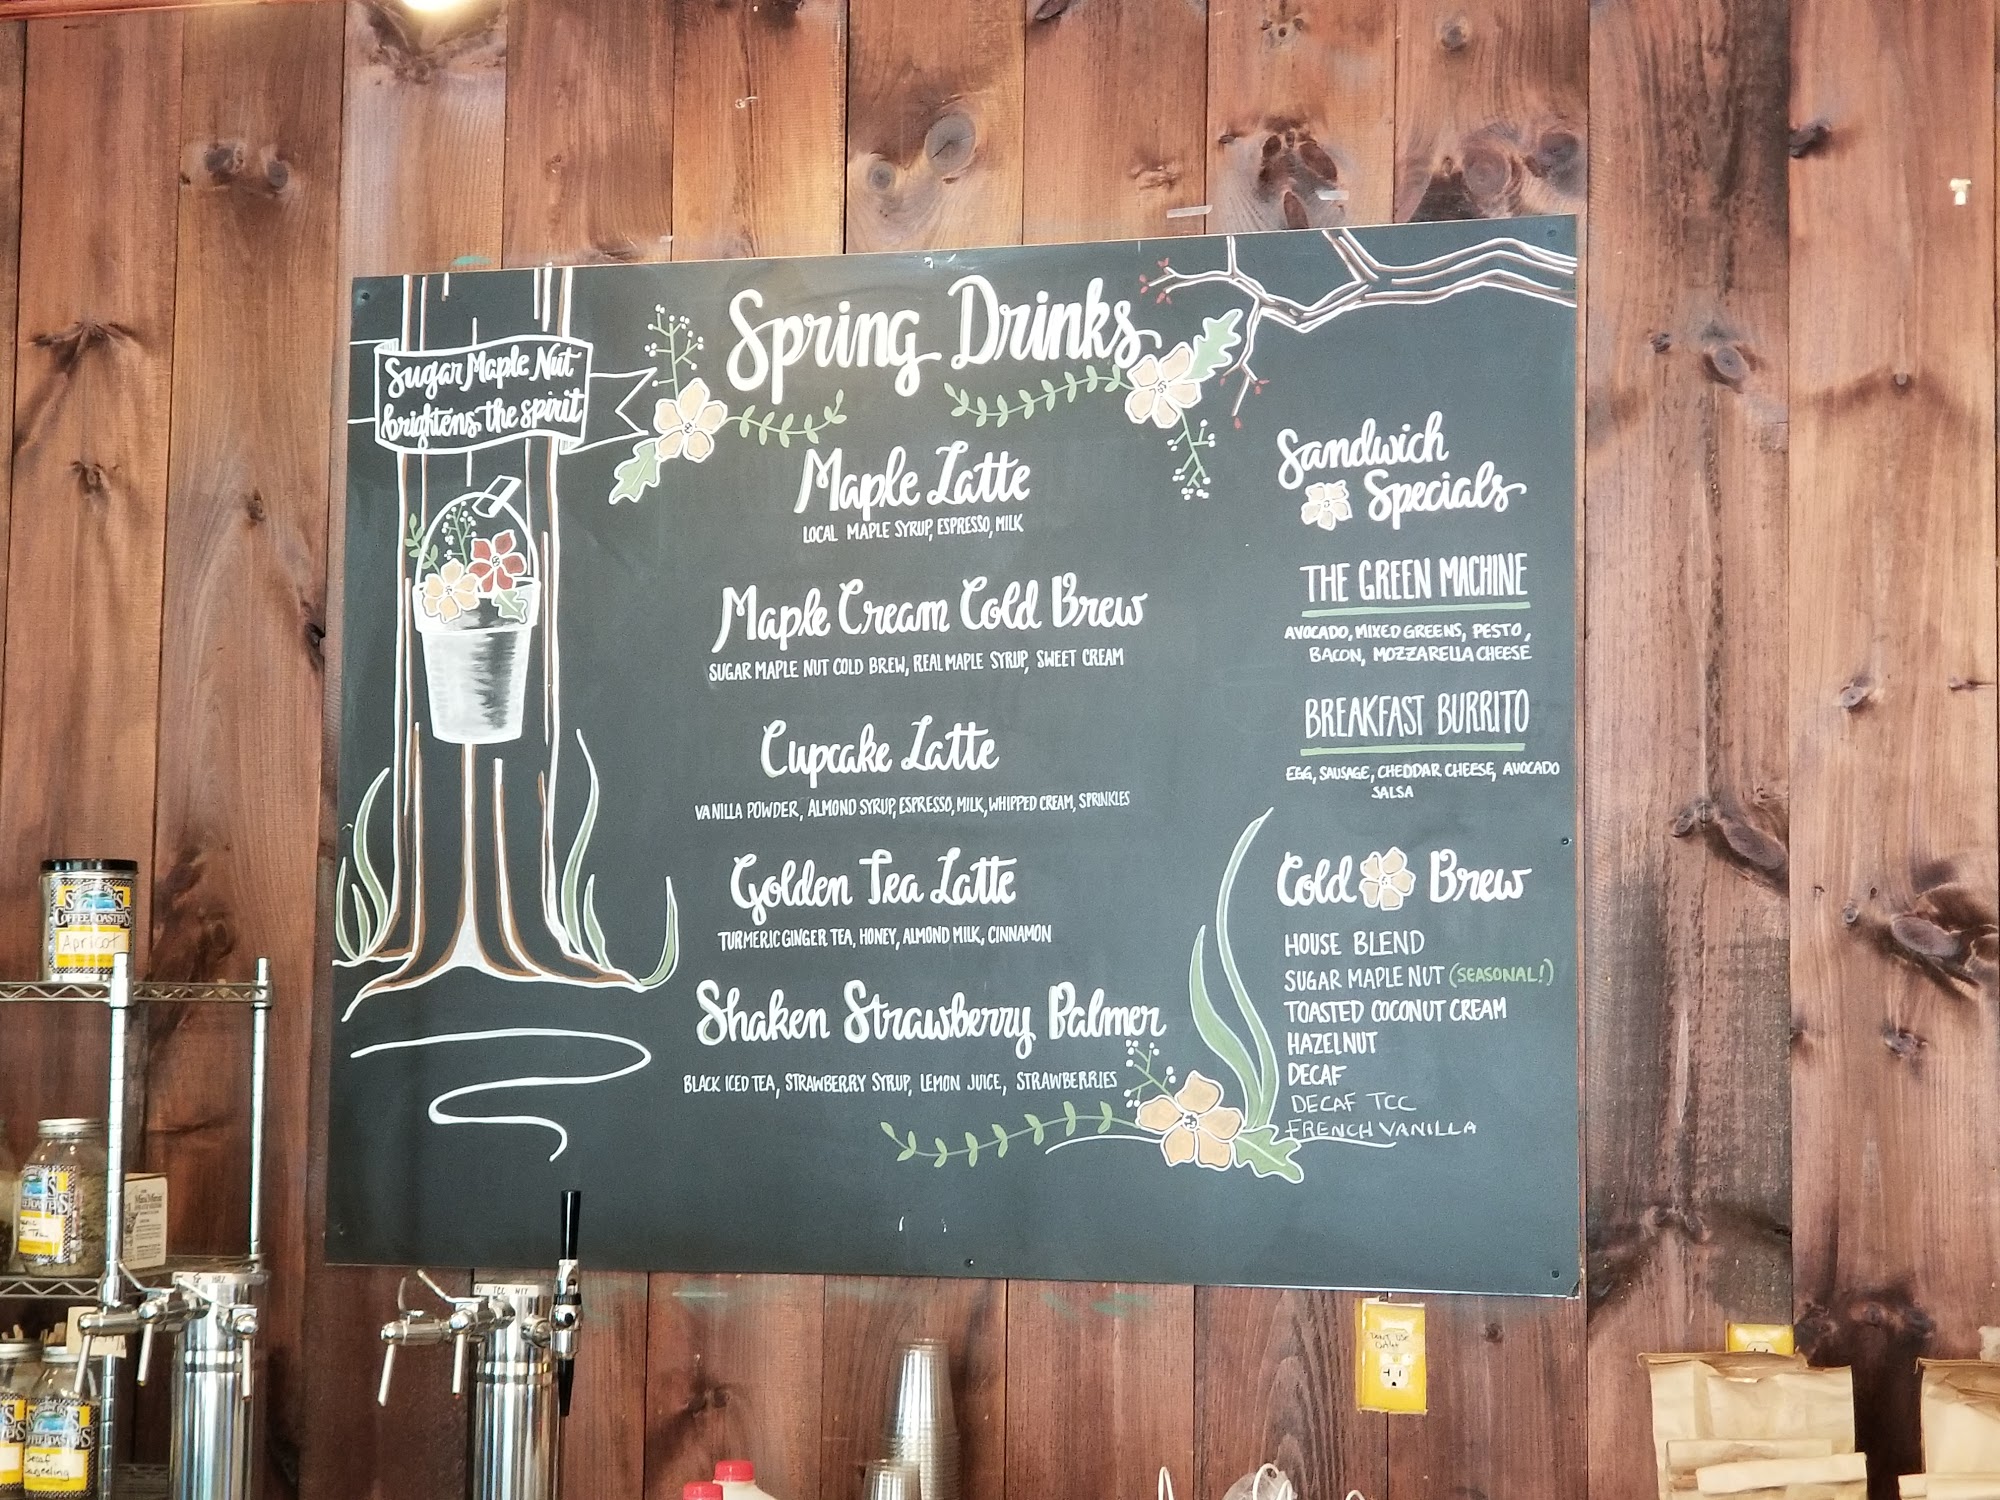 Spring Drinks
Sugar Maple Nut
brightens the spirit
Maple Latte
LOCAL MAPLE SYRUP, ESPRESSO, MILK
Maple Cream Cold Brew
SUGAR MAPLE NUT COLD BREW, REAL MAPLE SYRUP, SWEET CREAM
Cupcake Latte
VANILLA POWDER, ALMOND SYRUP, ESPRESSO, MILK, WHIPPED CREAM, SPRINKLES
Golden Tea Latte
TURMERIC GINGER TEA, HONEY, ALMOND MILK, CINNAMON
Shaken Strawberry Palmer
BLACK ICED TEA, STRAWBERRY SYRUP, LEMON JUICE, STRAWBERRIES
Sandwich
Specials
THE GREEN MACHINE
AVOCADO, MIXED GREENS, PESTO,
BACON, MOZZARELLA CHEESE
BREAKFAST BURRITO
EGG, SAUSAGE, CHEDDAR CHEESE, AVOCADO
SALSA
Cold Brew
HOUSE BLEND
SUGAR MAPLE NUT (SEASONAL!)
TOASTED COCONUT CREAM
HAZELNUT
DECAF
DECAF TCC
FRENCH VANILLA
COFFEE ROASTERS
Apricot
TCC
DON'T USE
Outlet
Decaf